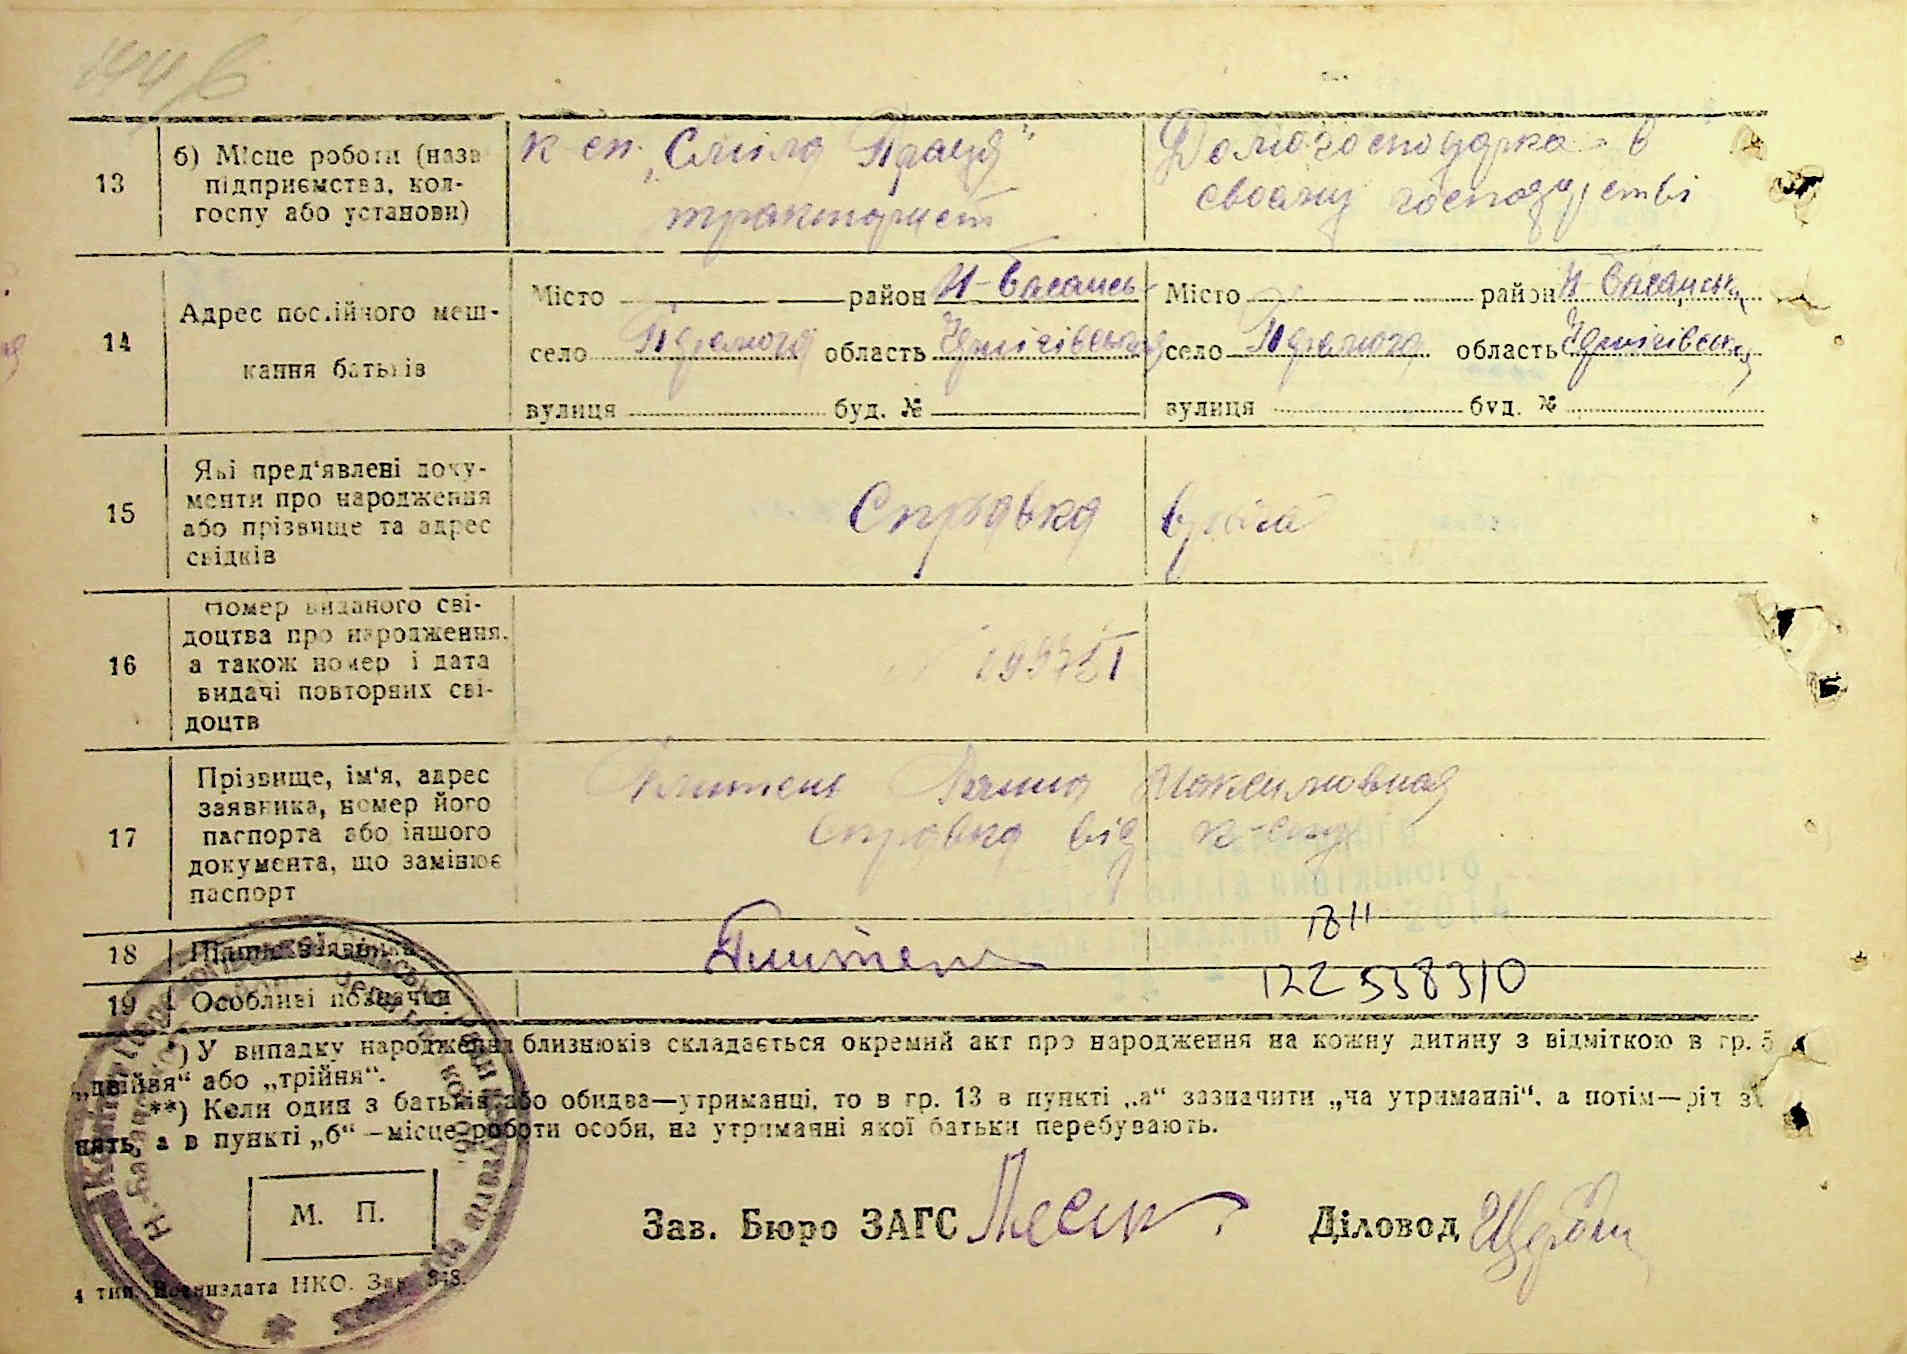 13
б) Місце роботи (назв
підприємства, кол-
госпу або установи)
к-сп. „Сміла Праця"
тракторист
Домогосподарка в
своєму господарстві
14
Адрес постійного меш-
кання батьків
Місто район Н-Басансь
село Перемога область Чернігівська
вулиця буд. №
Місто район Н-Басанськ
село Перемога область Чернігівська
вулиця буд. №
15
Які пред'явлені доку-
менти про народження
або прізвище та адрес
свідків
Справка врача
16
Номер виданого сві-
доцтва про народження,
а також номер і дата
видачі повторних сві-
доцтв
17
Прізвище, ім'я, адрес
заявника, номер його
паспорта або іншого
документа, що замінює
паспорт
Ганна Максимовна
справка від к-спу
18
Підпис заявника
19
Особливі позначки
122558310
*) У випадку народження близнюків складається окремий акт про народження на кожну дитину з відміткою в гр. 5
„двійня“ або „трійня“.
**) Коли один з батьків або обидва—утриманці, то в гр. 13 в пункті „а“ зазначити „на утриманні“, а потім—рід з
нять, а в пункті „б“—місце роботи особи, на утриманні якої батьки перебувають.
М. П.
Зав. Бюро ЗАГС
Діловод
4 тип. Воениздата НКО. Зак. 348.